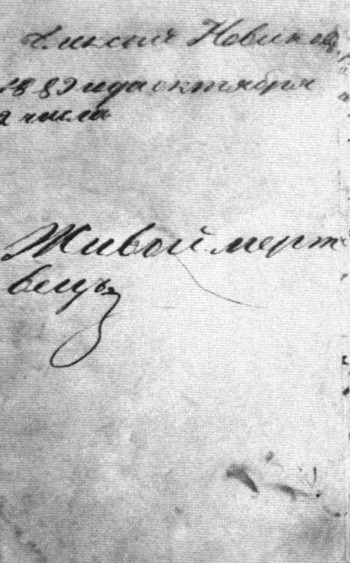 Аликсѣй Новиков
1889 года октября
2 числа
Живой мерт
вецъ